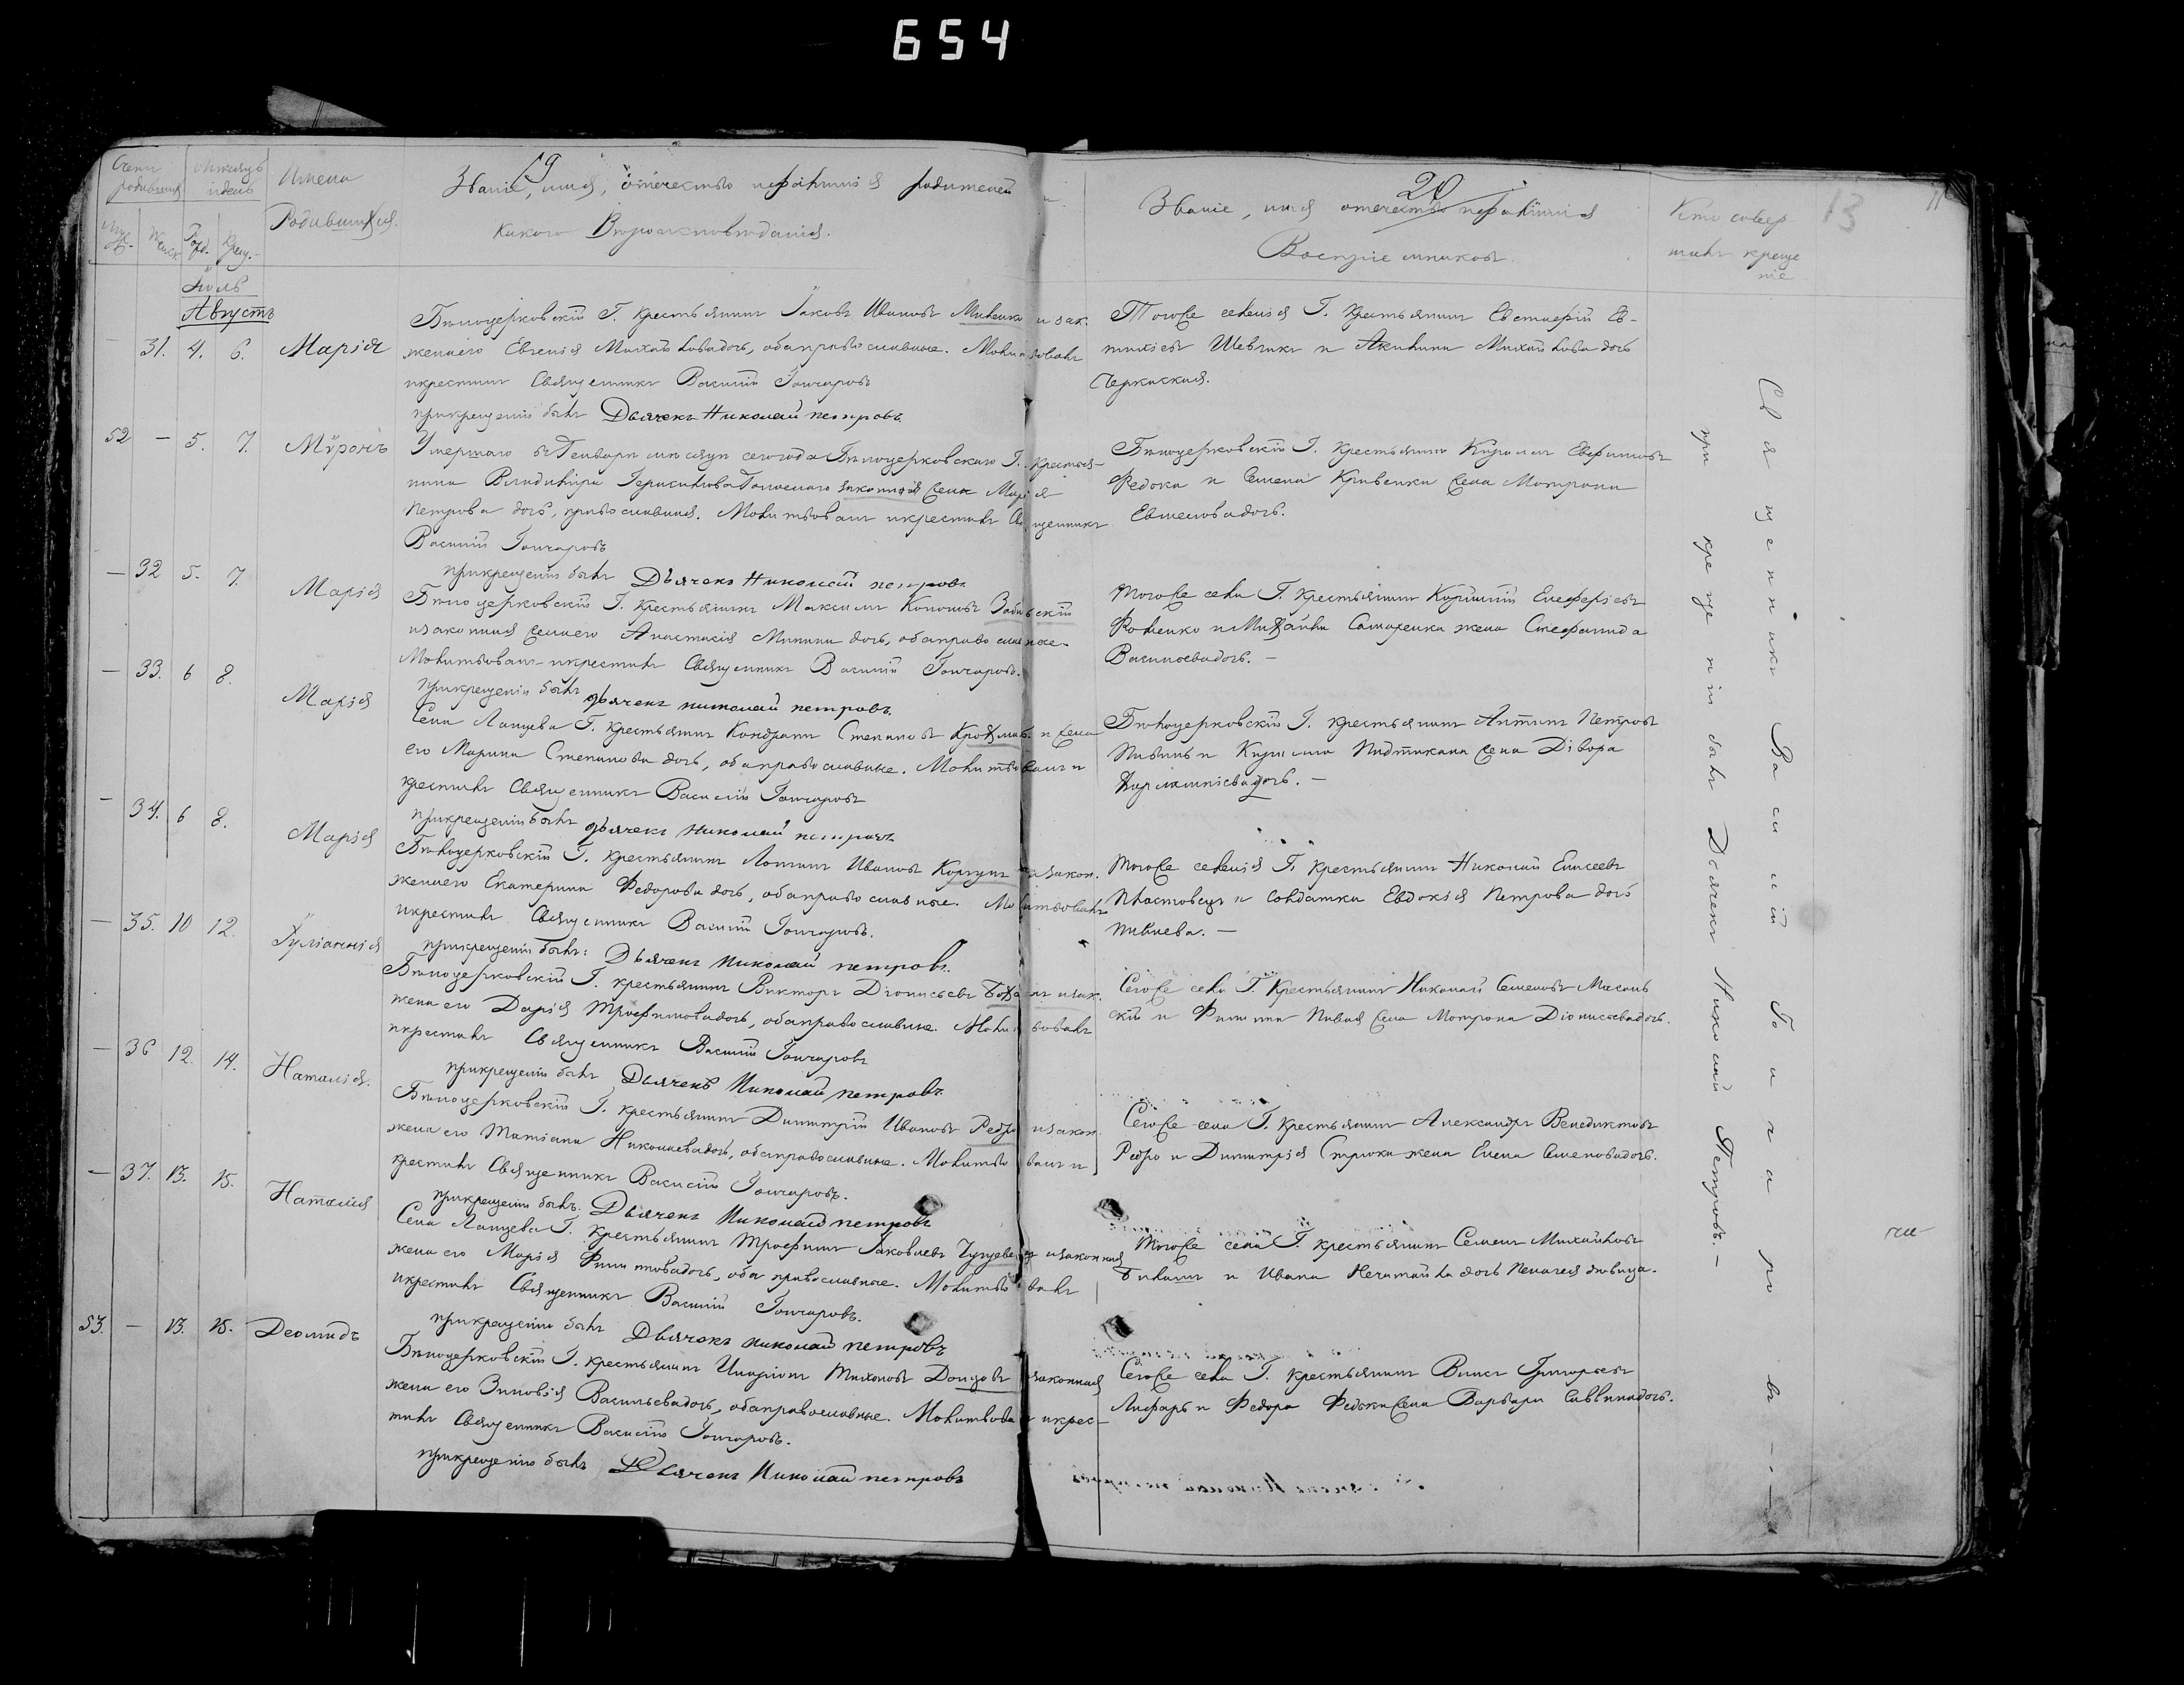 654
19
20
13
Счетъ родившихся
Мѣсяцъ и день
Имена Родившихся.
Званіе, имя, отечество и фамилія родителей и
какого Вѣроисповѣданія.
Званіе, имя отечество и фамилія
Воспріемниковъ.
Кто совер-
шилъ креще
ніе
Муж.
Женск
Рожд.
Крещ.
Іюль
Августъ
— 31. 4. 6. Марія
Бѣлоцерковскій Г. крестьянинъ Іаковъ Ивановъ и зак.
жена его Евгенія Михайлова дочь, оба православные. Молитвовалъ
и крестилъ Священникъ Василій Гончаровъ
при крещеніи былъ Дьячекъ Николай петровъ.
Тогоже селенія Г. крестьянинъ Евстафій Ев-
тихіевъ Шевчикъ и Акилина Михайлова дочь
Черкаская.
52 — 5. 7. Мѵронъ
Умершаго въ Генваре мѣсяце сего года Бѣлоцерковскаго Г. крестья-
нина Владиміра Герасимова законная жена Марія
Петрова дочь, православная. Молитвовалъ и крестилъ Священникъ
Василій Гончаровъ
при крещеніи былъ Дьячекъ Николай петровъ
Бѣлоцерковскій Г. крестьянинъ Кириллъ Евфимовъ
Федоки и Семена Кривенка жена Мотрона
дочь.
— 32 5. 7. Марія
Бѣлоцерковскій Г. крестьянинъ Максимъ Кононовъ
и законная жена его Анастасія Минина дочь, оба православные.
Молитвовалъ и крестилъ Священникъ Василій Гончаровъ.
при крещеніи былъ дьячекъ николай петровъ.
Тогоже села Г. крестьянинъ Елефєріевъ
Фоменко и Михаила Самаренка жена Стефанида
Васильева дочь. —
— 33. 6 8. Марія
Села Лапцева Г. крестьянинъ Кондратъ Степановъ и жена
его Марина Степанова дочь, оба православные. Молитвовалъ и
крестилъ Священникъ Василій Гончаровъ
при крещеніи былъ дьячекъ николай петровъ.
Бѣлоцерковскій Г. крестьянинъ Антонъ Петровъ
и Кирилла жена
дочь. —
— 34. 6 8. Марія
Бѣлоцерковскій Г. крестьянинъ Логинъ Ивановъ и закон.
жена его Екатерина Федорова дочь, оба православные. Молитвовалъ
и крестилъ Священникъ Василій Гончаровъ.
при крещеніи былъ: Дьячекъ николай петровъ.
Тогоже селенія Г. крестьянинъ Николай Елисеевъ
и солдатка Евдокія Петрова дочь
Пивнева. —
— 35. 10 12. Іуліаннія
Бѣлоцерковскій Г. крестьянинъ Викторъ Діонисіевъ и зак.
жена его Дарія Трофимова дочь, оба православные. Молитвовалъ
и крестилъ Священникъ Василій Гончаровъ
при крещеніи былъ Дьячекъ Николай петровъ.
Сегоже села Г. крестьянинъ Николай Семеновъ Масалъ
скій и Филиппа жена Мотрона Діонисіева дочь.
— 36 12. 14. Наталія.
Бѣлоцерковскій Г. крестьянинъ Димитрій Ивановъ Редро и закон.
жена его Татіана Николаева дочь, оба православные. Молитвовалъ и
крестилъ Священникъ Василій Гончаровъ.
при крещеніи былъ. Дьячекъ Николай петровъ
Сегоже села Г. крестьянинъ Александръ Венедиктовъ
Редро и Димитрія Строка жена Елена Семенова дочь.
— 37. 13. 15. Наталія
Села Лапцева Г. крестьянинъ Трофимъ Іаковлевъ и законная
жена его Марія Филиппова дочь, оба православные. Молитвовалъ
и крестилъ Священникъ Василій Гончаровъ.
при крещеніи былъ Дьячекъ николай петровъ
Тогоже села Г. крестьянинъ Семенъ Михайловъ
и Ивана Нечитайла дочь Пелагея дѣвица.
53. — 13. 15. Деомидъ
Бѣлоцерковскій Г. крестьянинъ Иларіонъ Тихоновъ Донцовъ законная
жена его Зиновія Васильева дочь, оба православные. Молитвовалъ и крес-
тилъ Священникъ Василій Гончаровъ.
при крещеніи былъ Дьячекъ Николай петровъ
Сегоже села Г. крестьянинъ Григорьевъ
Лифарь и Федора Федоки жена Варвара Саввина дочь.
Священникъ Василій Гончаровъ —
при крещеніи былъ Дьячекъ Николай Петровъ. —